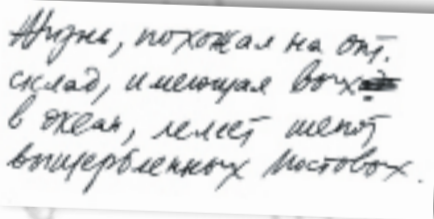 Жизнь, похожая на опт.
склад, имеющая выход
в океан, лелеет шепот
выщербленных мостовых.